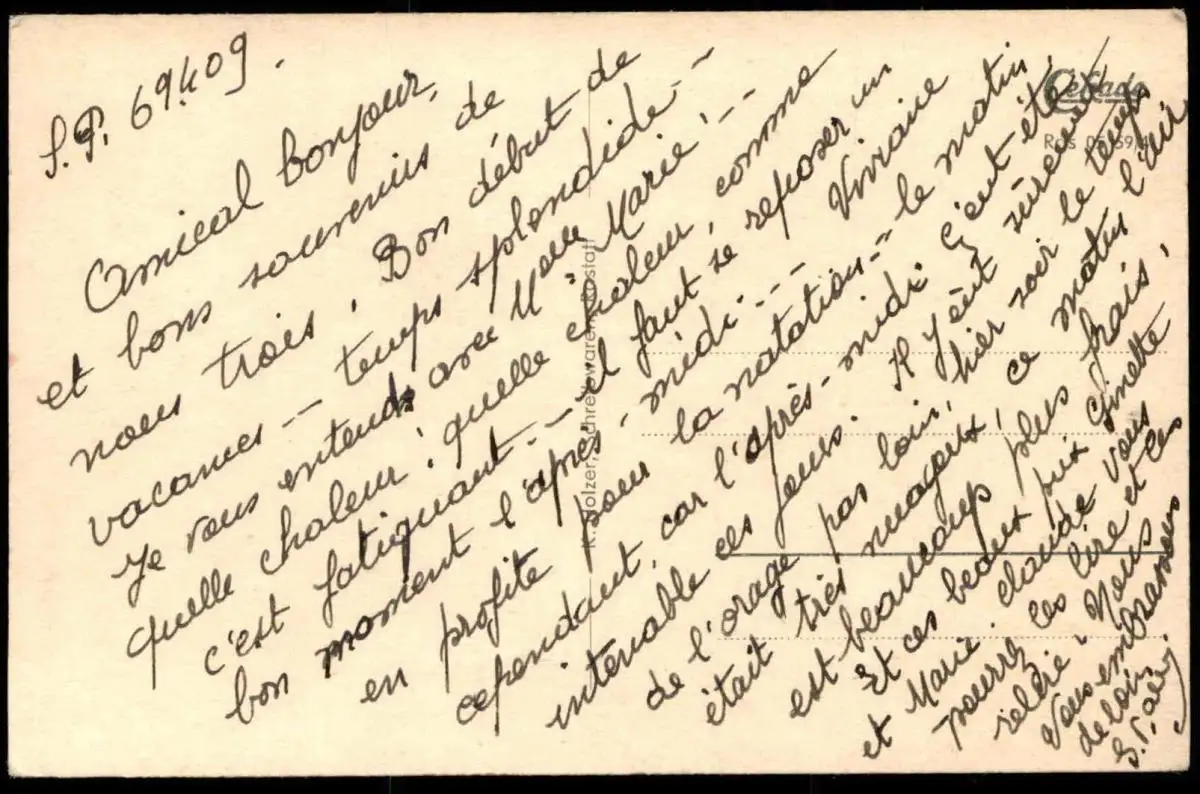 S.P. 69.409.
Amical bonjour,
et bons souvenirs de
nous trois. Bon début de
vacances - temps splendide --
Je vous entends avec Melle Marie : --
quelle chaleur ! quelle chaleur, comme
c'est fatiguant -- il faut se reposer un
bon moment l'après-midi --- Viviane
en profite pour la natation -- le matin
cependant, car l'après-midi c'eut été
intenable ces jours. Il y eut sûrement
de l'orage pas loin, hier soir le temps
était très nuageux, ce matin l'air
est beaucoup plus frais,
Et ces beaux prix Ginette
et Marie. claude vous
pourrez les lire et les
relire - Nous
Vous embrassons
de loin
Cekade
K. Volzer, Schreibwaren, Rastatt